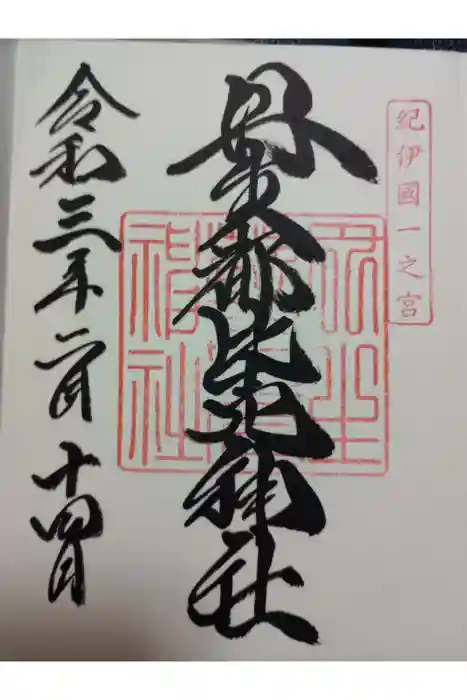 紀伊國一之宮
丹生都比売神社
令和三年二月十四日